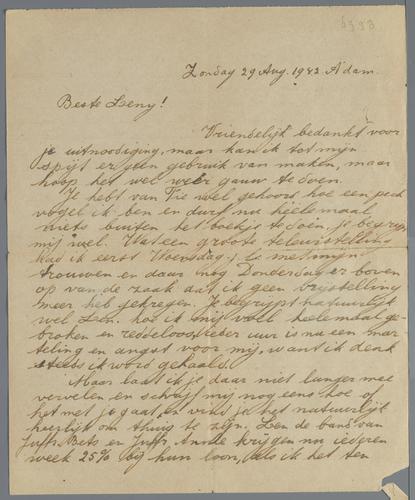 6393
Zondag 29 Aug. 1943 A'dam.
Beste Leny!
Vriendelijk bedankt voor
je uitnoodiging, maar kan ik tot mijn
spijt er geen gebruik van maken, maar
hoop het wel weer gauw te doen.
Je hebt van Tie wel gehoord hoe een pech
vogel ik ben en durf nu heelemaal
niets buiten het boekje te doen, je begrijpt
mij wel. Wat een groote teleurstelling
had ik eerst Woensdag j.l. met mijn
trouwen en daar nog Donderdag er boven
op van de zaak dat ik geen vrijstelling
meer heb gekregen. Je begrijpt natuurlijk
wel Len. hoe ik mij voel heelemaal ge-
broken en reddeloos, ieder uur is nu een mar
teling en angst voor mij, want ik denk
steeds ik word gehaald.
Maar laat ik je daar niet langer mee
vervelen en schrijf mij nog eens hoe of
het met je gaat, en vind je het natuurlijk
heerlijk om thuis te zijn. Len de bans van
Juffr. Bets en Juffr. Annie krijgen nu iederen
week 25% bij hun loon, als ik het ten